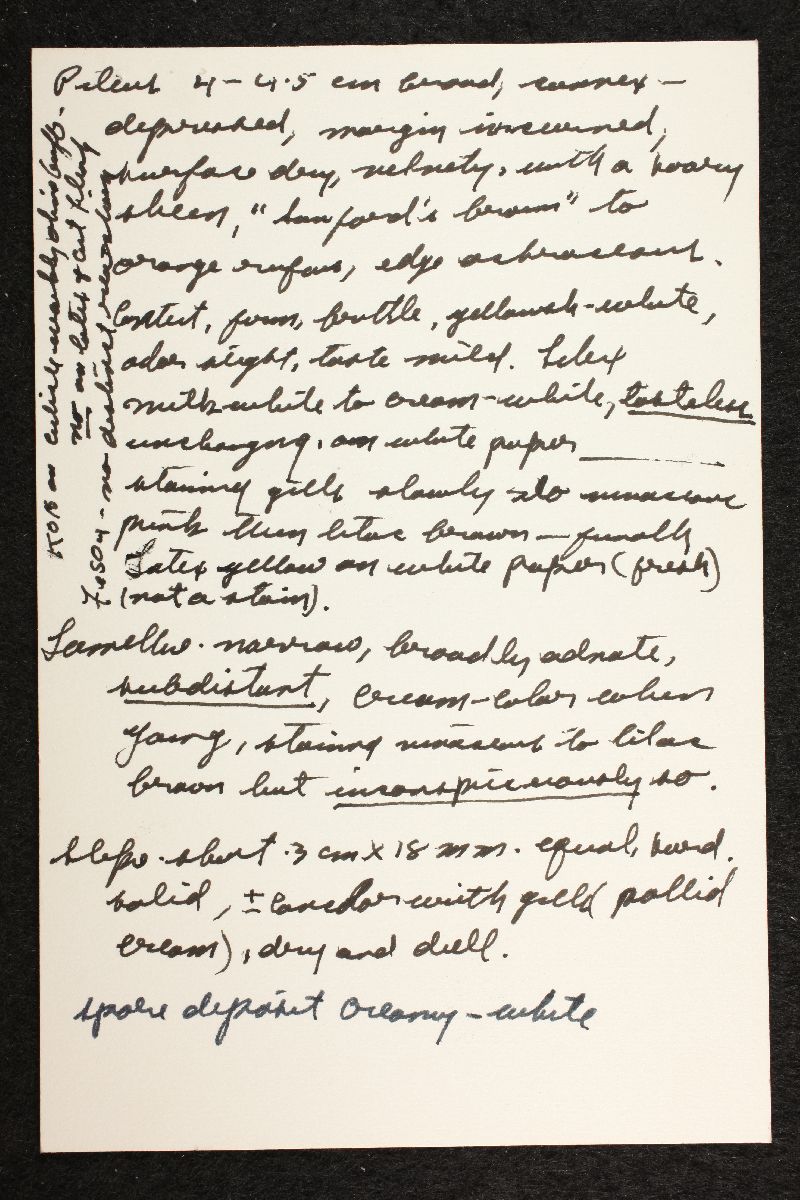 Pileus 4-4.5 cm broad, convex-
depressed, margin incurved,
surface dry, velvety, with a hoary
sheen, "Sanford's brown" to
orange rufous, edge ochraceous.
Context, firm, brittle, yellowish-white,
odor slight, taste mild. Latex
milk-white to cream-white, tasteless
unchanging, on white paper
staining gills slowly to vinaceous
pink then lilac brown - finally
Latex yellow on white paper (fresh)
(not a stain).
Lamellae. narrow, broadly adnate,
subdistant, cream-color when
young, staining vinaceous to lilac
brown but inconspicuously so.
Stipe. short. 3 cm X 18 mm. equal, hard.
solid, ± concolor with gills (pallid
cream), dry and dull.
spore deposit creamy-white
KOH on cuticle
no on latex & cut flesh
FeSO4 - no distinct reaction